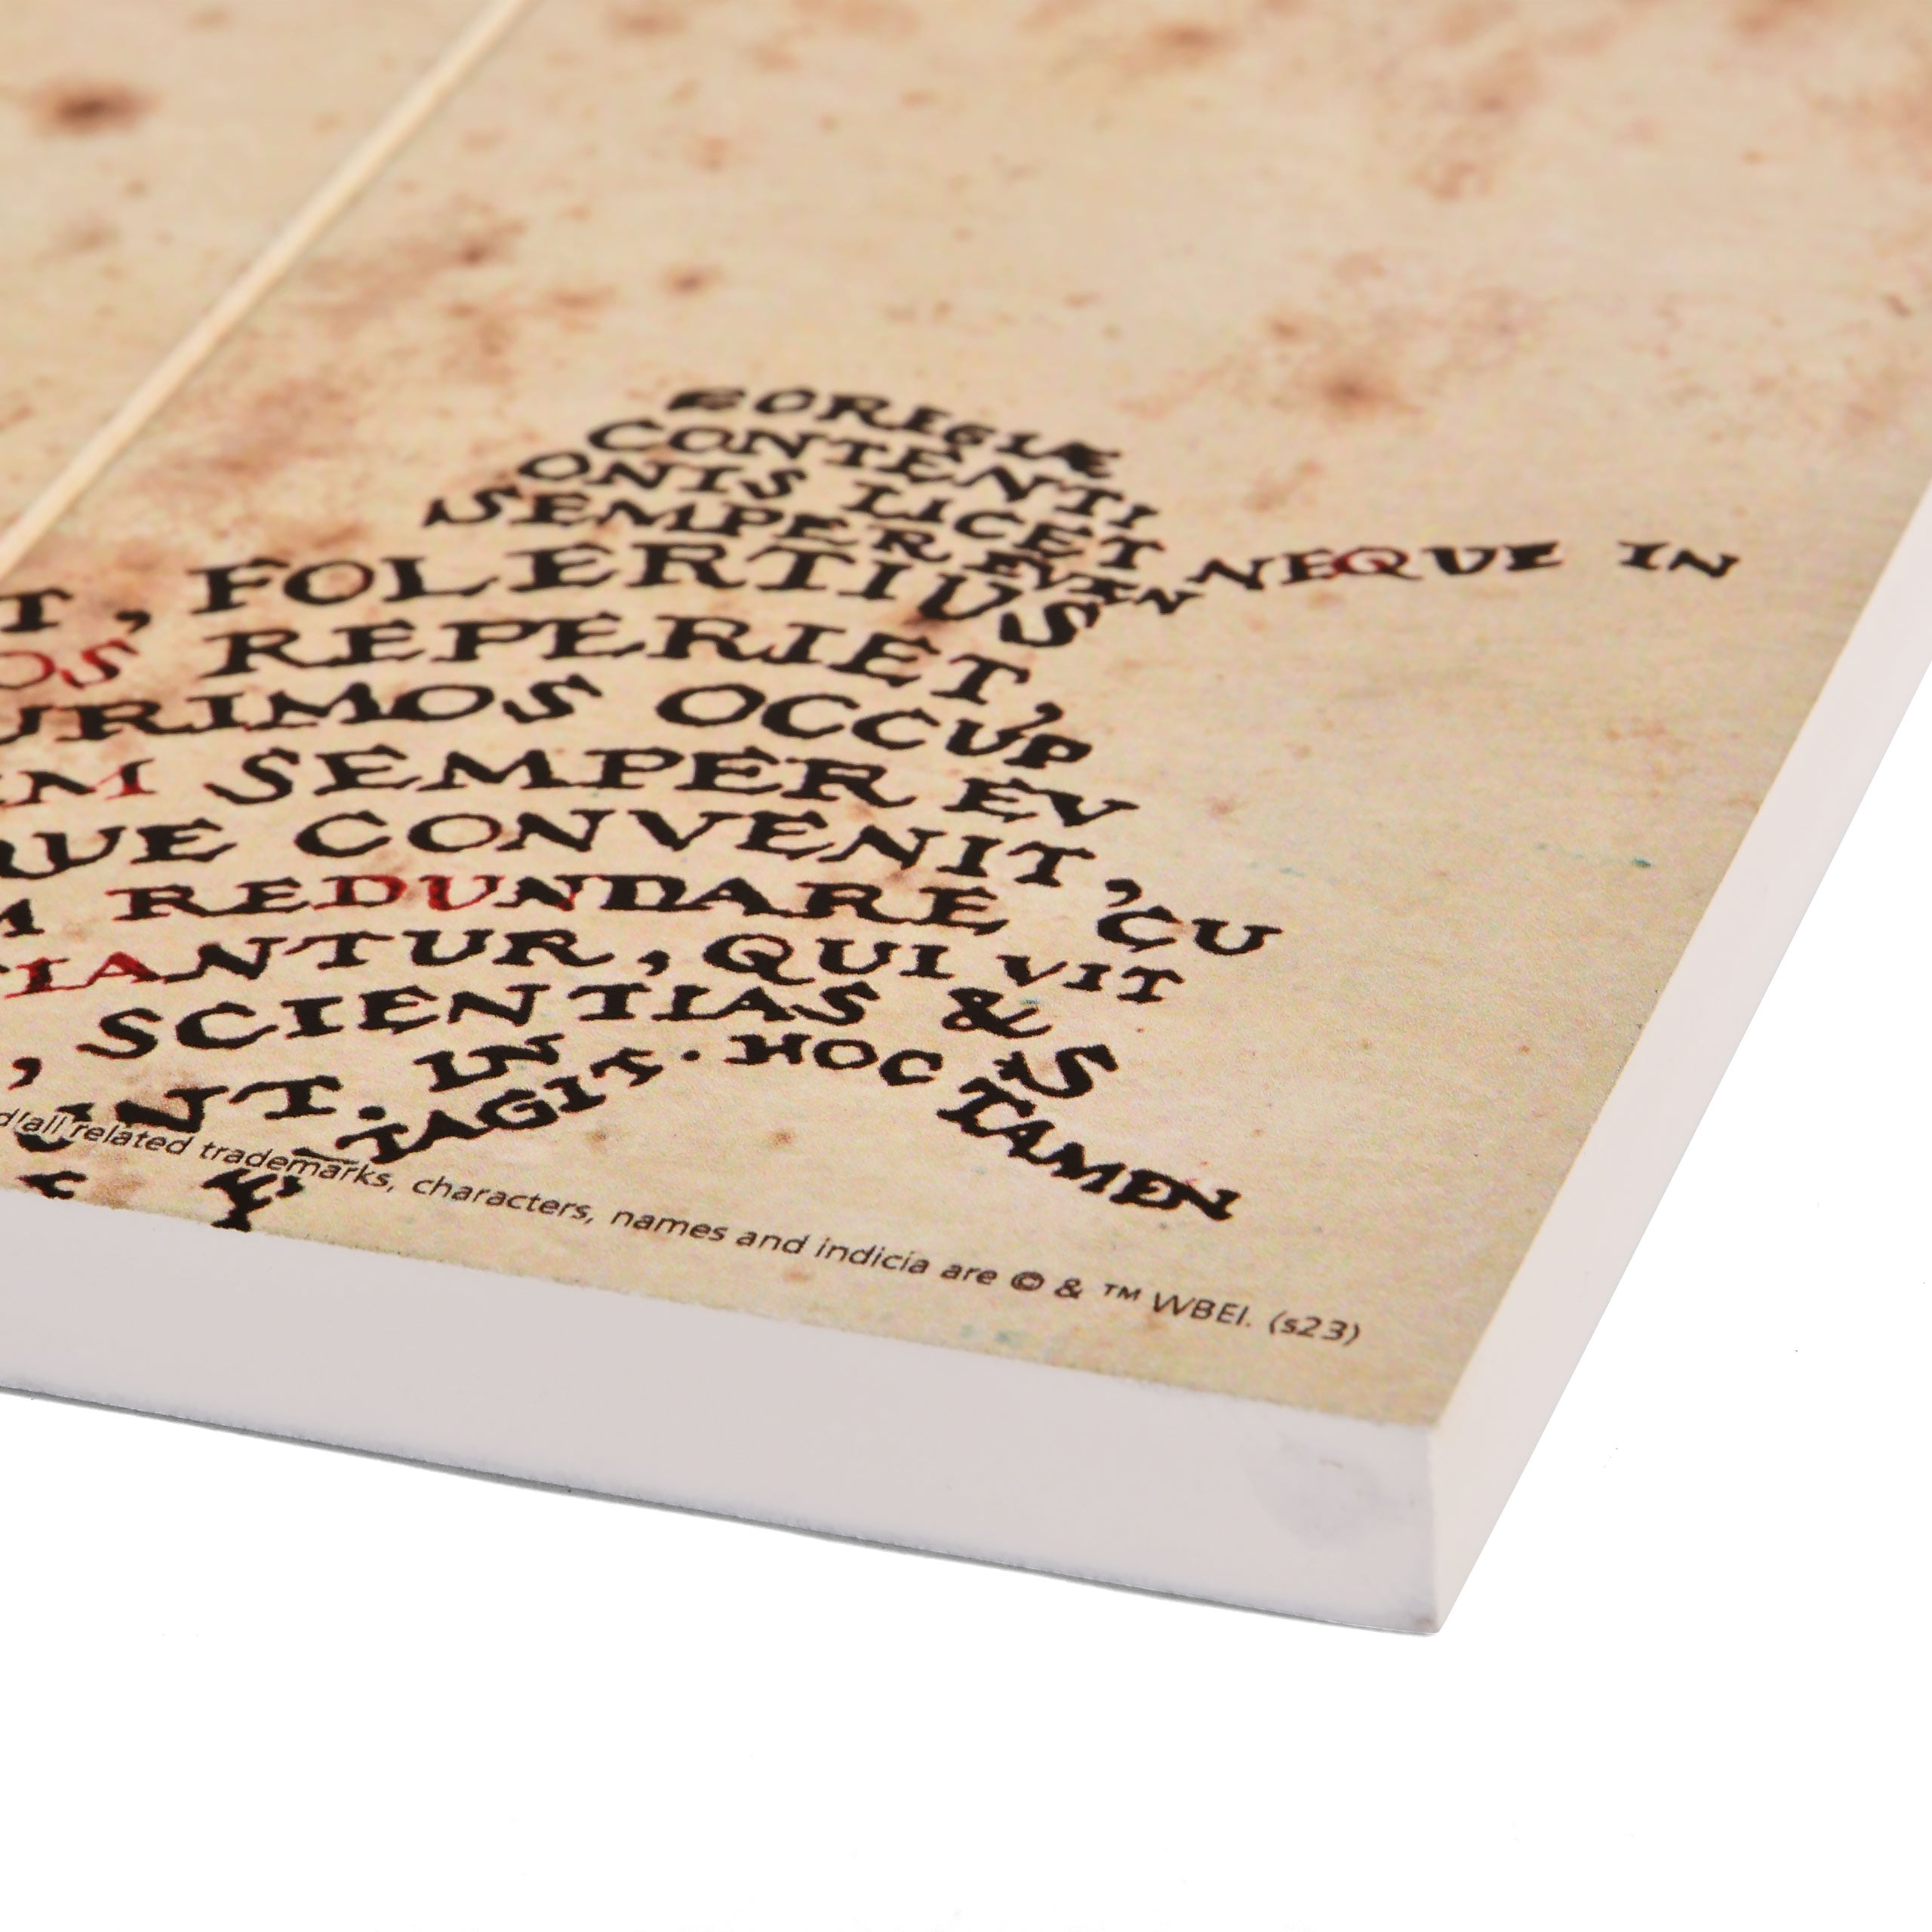 CONTENTI
ONIS LICET
SEMPER
NEQUE IN
T, FOLERTIUS
OS REPERIET,
URIMOS OCCUP
EM SEMPER EV
QUE CONVENIT, CU
M REDUNDARE
IANTUR, QUI VIT
, SCIENTIAS & S
UNT. IN
TAGIT. HOC TAMEN
d all related trademarks, characters, names and indicia are © & ™ WBEI. (s23)